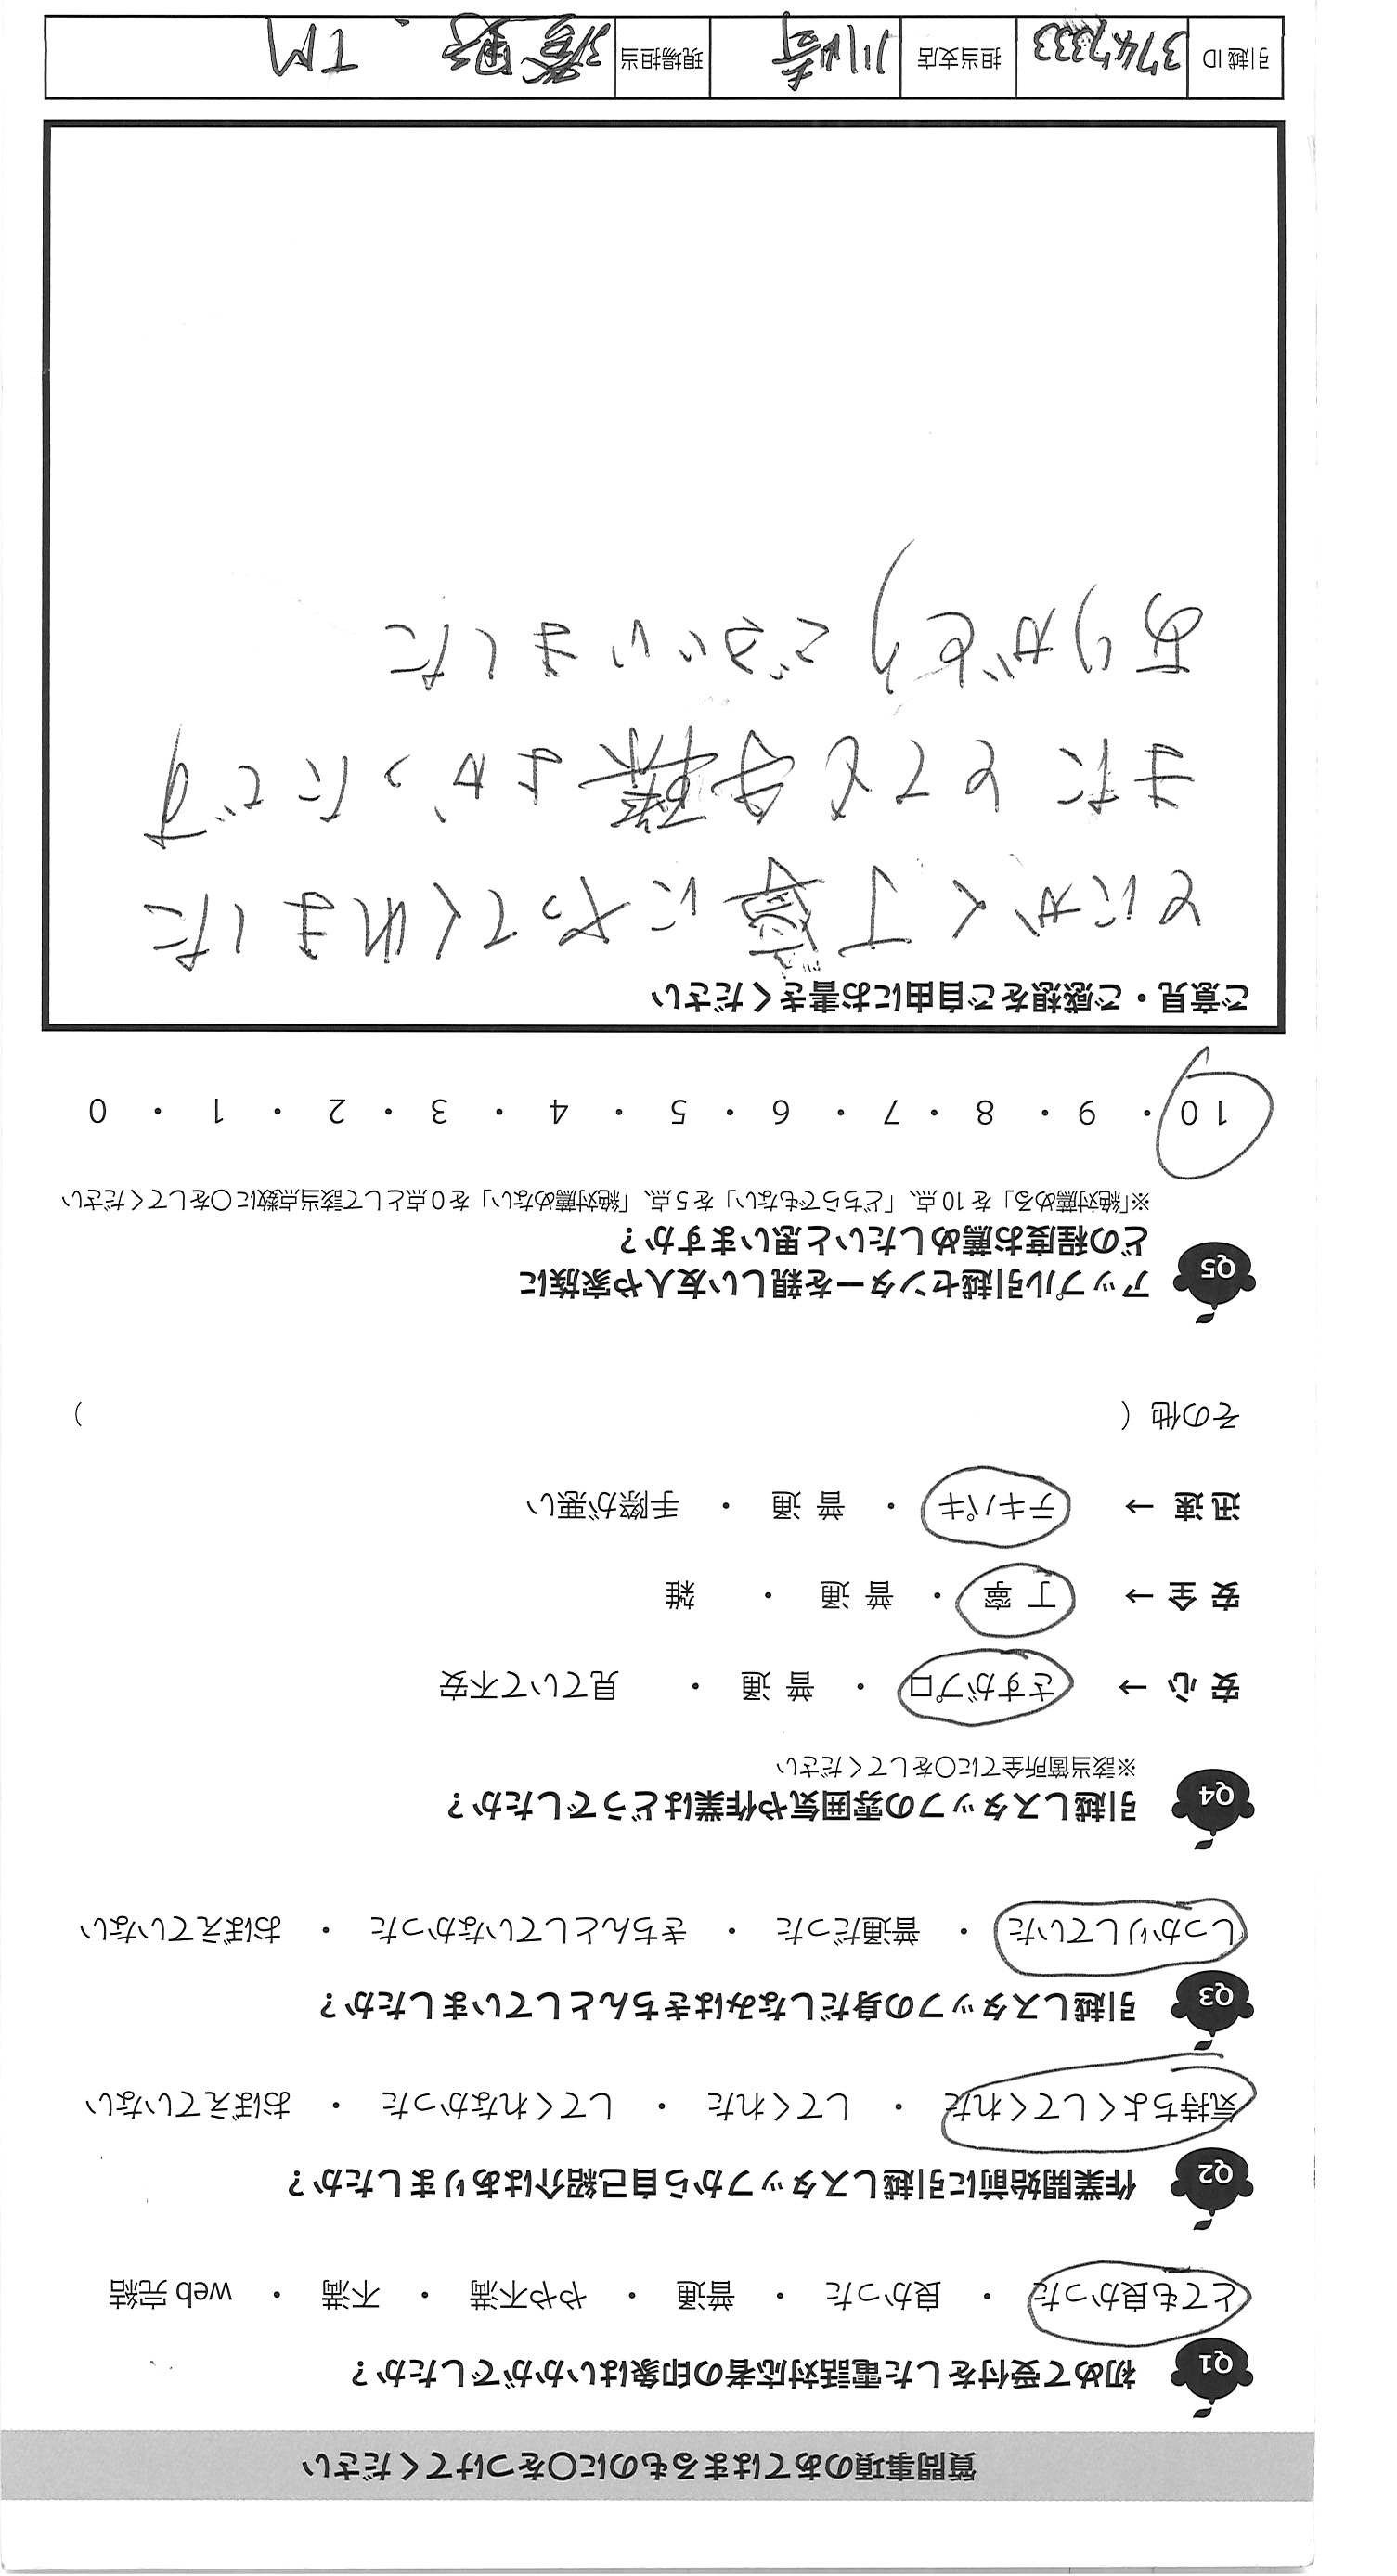 質問事項のあてはまるものに〇をつけてください
Q1 初めて受付をした電話対応者の印象はいかがでしたか？
とても良かった ・ 良かった ・ 普通 ・ やや不満 ・ 不満 ・ web 完結
Q2 作業開始前に引越しスタッフから自己紹介はありましたか？
気持ちよくしてくれた ・ してくれた ・ してくれなかった ・ おぼえていない
Q3 引越しスタッフの身だしなみはきちんとしていましたか？
しっかりしていた ・ 普通だった ・ きちんとしていなかった ・ おぼえていない
Q4 引越しスタッフの雰囲気や作業はどうでしたか？
※該当箇所全てに〇をしてください
安 心 → さすがプロ ・ 普 通 ・ 見ていて不安
安 全 → 丁 寧 ・ 普 通 ・ 雑
迅 速 → テキパキ ・ 普 通 ・ 手際が悪い
その他（ ）
Q5 アップル引越センターを親しい友人や家族に
どの程度お薦めしたいと思いますか？
※「絶対薦める」を 10 点、「どちらでもない」を 5 点、「絶対薦めない」を 0 点として該当点数に〇をしてください
10 ・ 9 ・ 8 ・ 7 ・ 6 ・ 5 ・ 4 ・ 3 ・ 2 ・ 1 ・ 0
ご意見・ご感想をご自由にお書きください
とにかく丁寧にやってくれました
またとても手際よかったです
ありがとうございました
引越 ID 3747333 担当支店 川崎 現場担当 TM